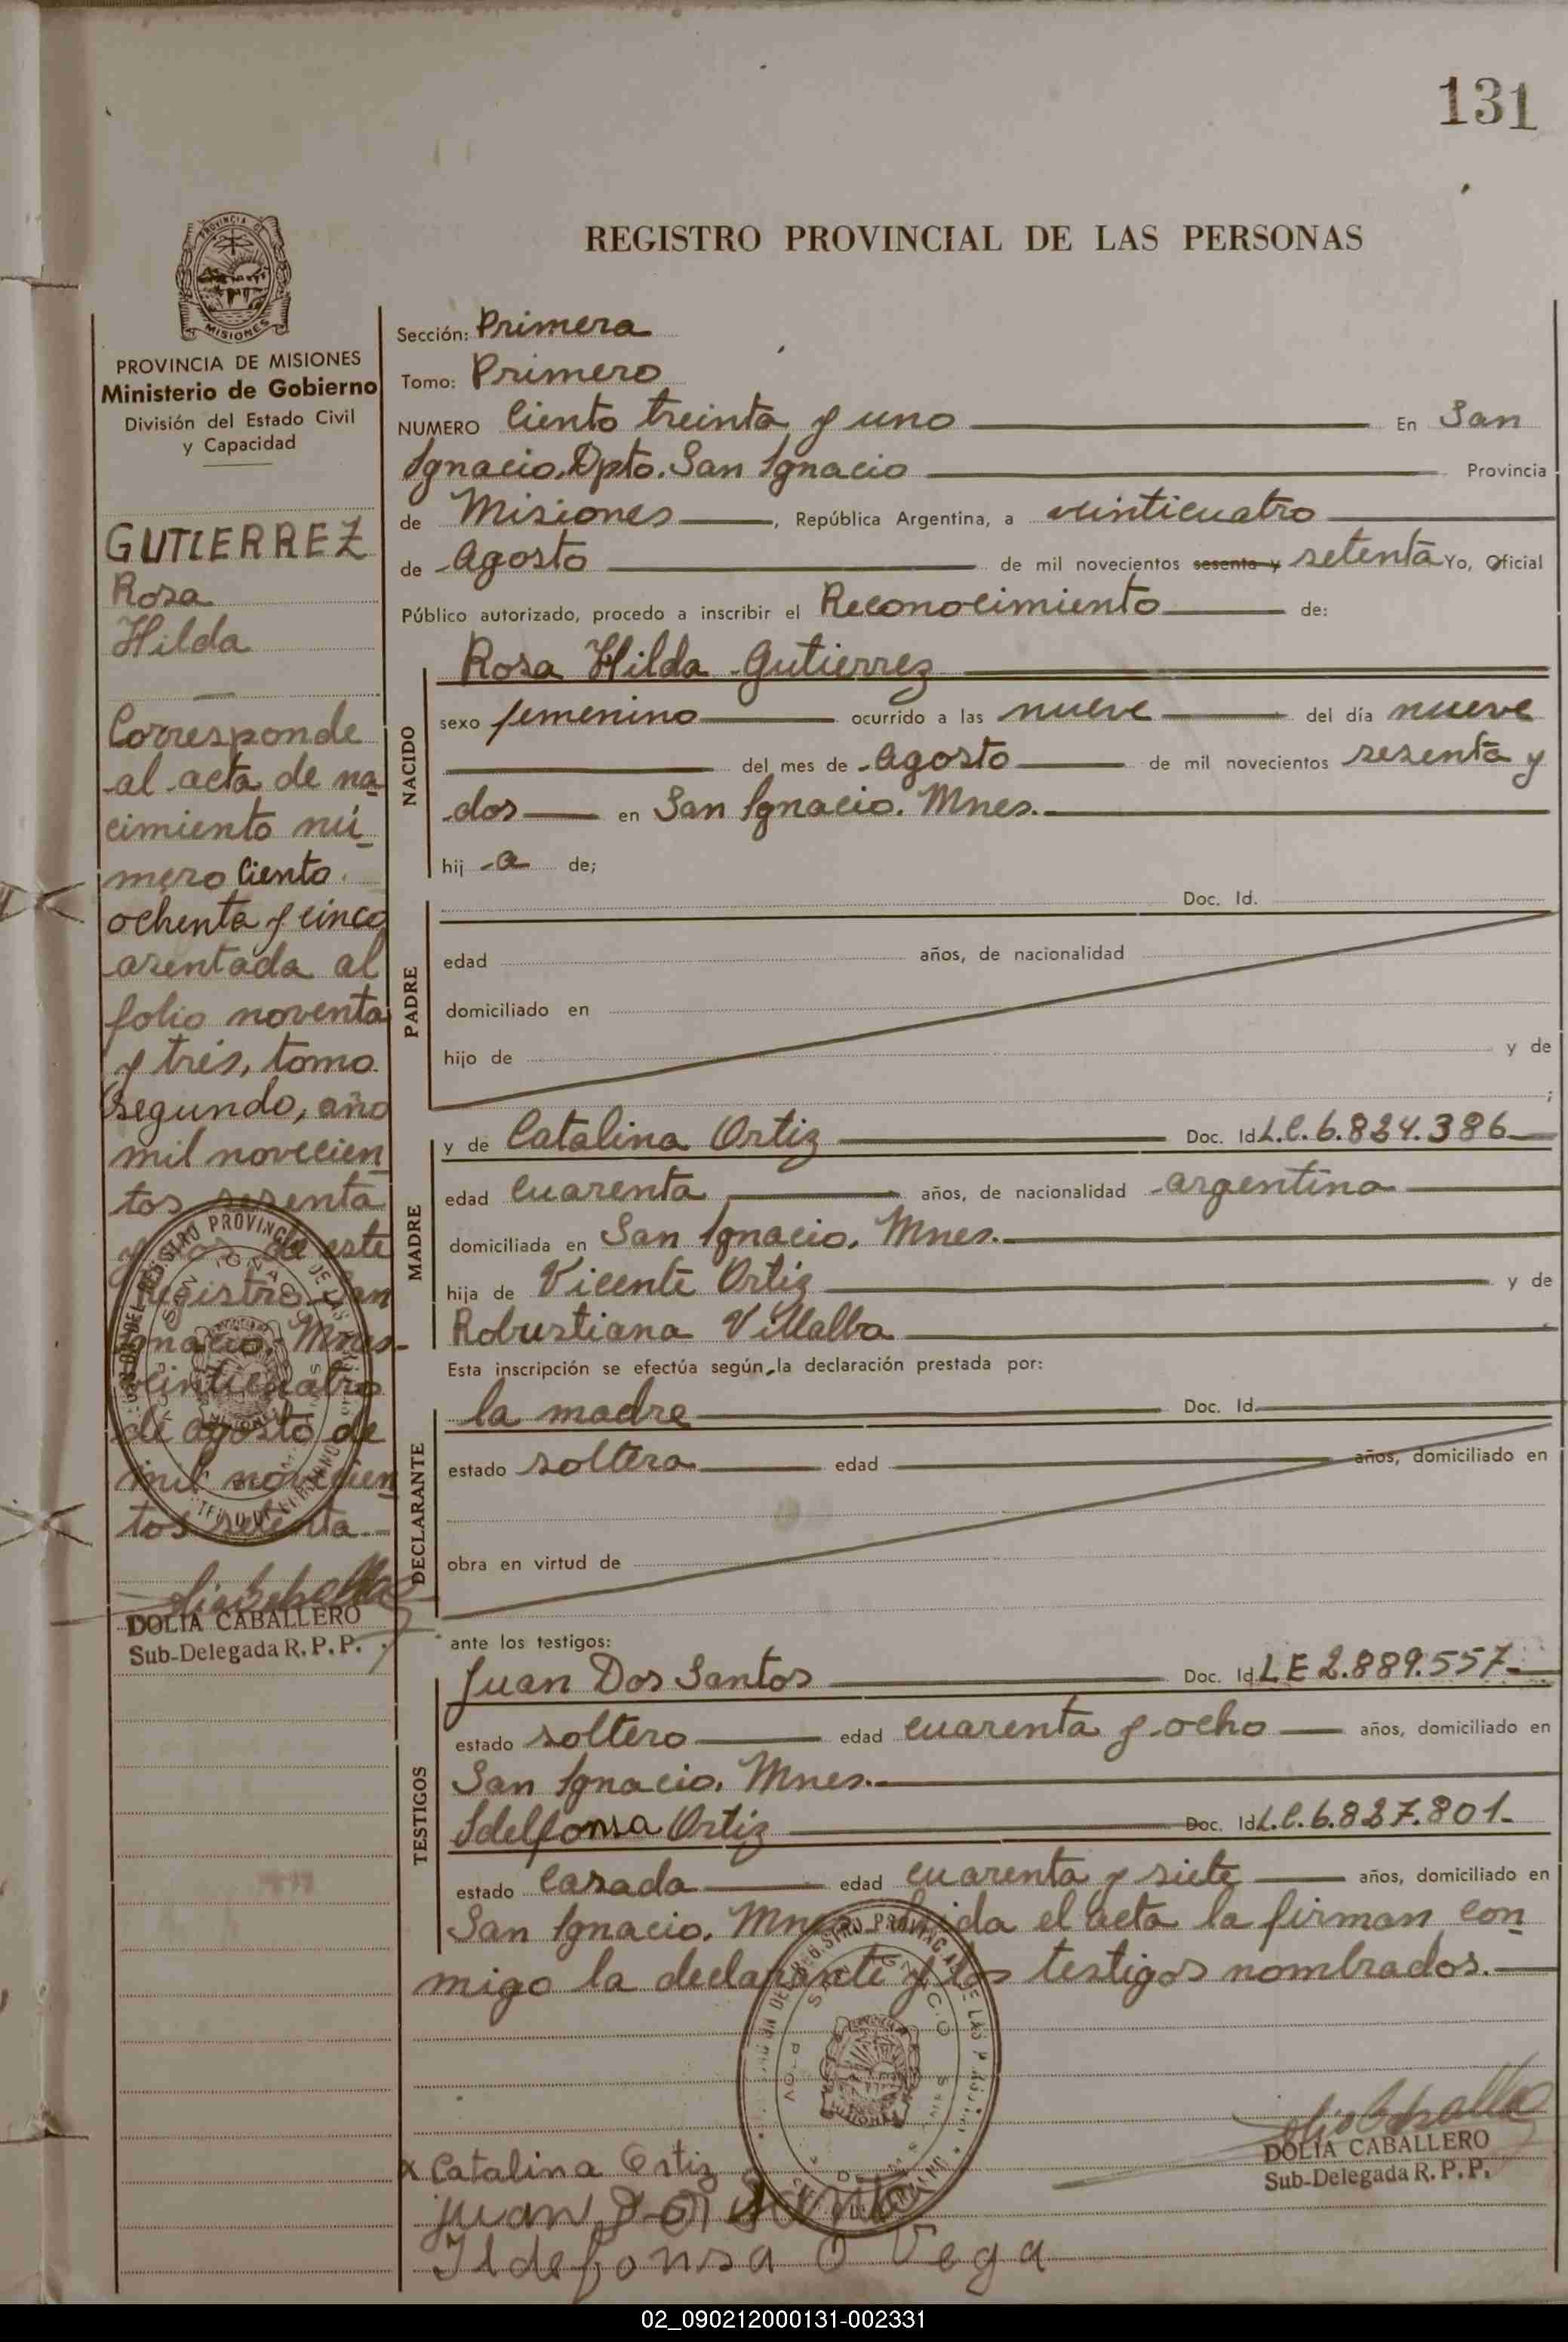 131
REGISTRO PROVINCIAL DE LAS PERSONAS
PROVINCIA DE
MISIONES
PROVINCIA DE MISIONES
Ministerio de Gobierno
División del Estado Civil
y Capacidad
GUTIERREZ
Rosa
Hilda
Corresponde
al acta de na
cimiento nú
mero Ciento
ochenta y cinco
asentada al
folio noventa
y tres, tomo
segundo, año
mil novecien
tos sesenta
y dos de este
Registro. San
Ignacio. Mnes-
veinticuatro
de agosto de
mil novecien
tos setenta.-
DOLIA CABALLERO
Sub-Delegada R.P.P.
Sección: Primera
Tomo: Primero
NUMERO Ciento treinta y uno En San
Ignacio. Dpto. San Ignacio Provincia
de Misiones, República Argentina, a veinticuatro
de Agosto de mil novecientos sesenta y setenta Yo, Oficial
Público autorizado, procedo a inscribir el Reconocimiento de:
NACIDO
Rosa Hilda Gutierrez
sexo femenino ocurrido a las nueve del día nueve
del mes de Agosto de mil novecientos sesenta y
dos en San Ignacio. Mnes.
hij a de;
PADRE
Doc. Id.
edad años, de nacionalidad
domiciliado en
hijo de y de
;
MADRE
y de Catalina Ortiz Doc. Id L.C. 6.824.386
edad cuarenta años, de nacionalidad argentina
domiciliada en San Ignacio, Mnes.
hija de Vicente Ortiz y de
Robustiana Villalba
Esta inscripción se efectúa según la declaración prestada por:
DECLARANTE
la madre Doc. Id.
estado soltera edad años, domiciliado en
obra en virtud de
ante los testigos:
TESTIGOS
Juan Dos Santos Doc. Id LE 2.889.557
estado soltero edad cuarenta y ocho años, domiciliado en
San Ignacio. Mnes.
Idelfonsa Ortiz Doc. Id L.C. 6.827.801.
estado Casada edad cuarenta y siete años, domiciliado en
San Ignacio. Mnes. leida el acta la firman con
migo la declarante y los testigos nombrados.
DOLIA CABALLERO
Sub-Delegada R.P.P.
x Catalina Ortiz
juan Dos Santo
Ildefonsa O Vega
02_090212000131-002331